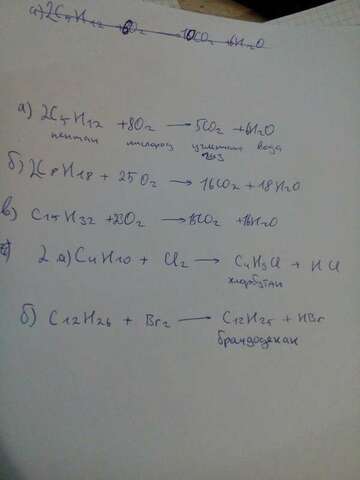 а) 2C5H12 + 6O2 10CO2 + 6H2O
а) 2C5H12 + 8O2 → 5CO2 + 6H2O
пентан кислород углекислый вода
газ
б) 2C8H18 + 25O2 → 16CO2 + 18H2O
в) C15H32 + 23O2 → 15CO2 + 16H2O
2 а) C4H10 + Cl2 → C4H9Cl + HCl
хлорбутан
б) C12H26 + Br2 → C12H25 + HBr
бромдодекан